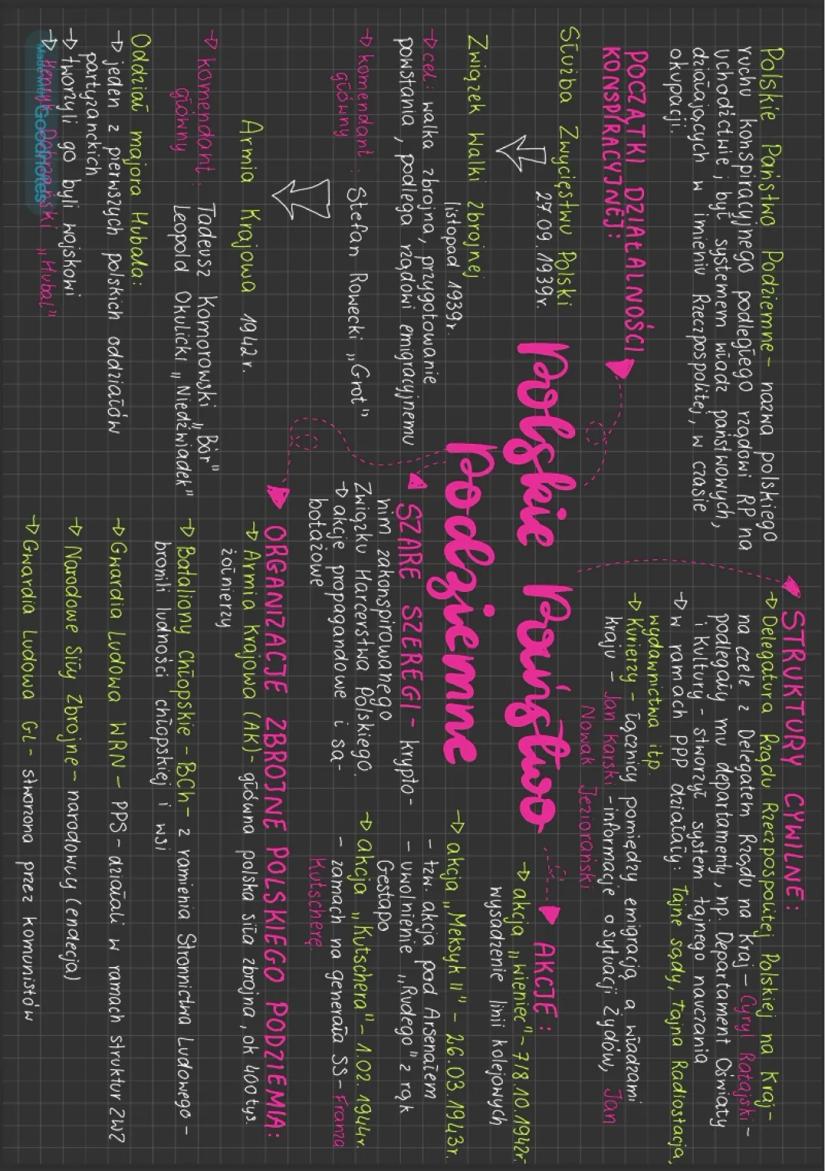 Polskie Państwo Podziemne - nazwa polskiego
ruchu konspiracyjnego podległego rządowi RP na
uchodźctwie; był systemem władz państwowych,
działających w imieniu Rzeczpospolitej, w czasie
okupacji.
POCZĄTKI DZIAŁALNOŚCI
KONSPIRACYJNEJ:
Służba Zwycięstwu Polski
27.09.1939r.
Związek Walki Zbrojnej
listopad 1939r.
→ cel: walka zbrojna, przygotowanie
powstania, podlega rządowi emigracyjnemu
→ komendant: Stefan Rowecki „Grot”
główny
Armia Krajowa 1942r.
→ komendant: Tadeusz Komorowski „Bór”
główny Leopold Okulicki „Niedźwiadek”
Oddział majora Hubala:
→ jeden z pierwszych polskich oddziałów
partyzanckich
→ tworzyli go byli wojskowi
→ Henryk Dobrzański „Hubal”
Made with Goodnotes
Polskie Państwo
Podziemne
STRUKTURY CYWILNE:
→ Delegatura Rządu Rzeczpospolitej Polskiej na Kraj -
na czele z Delegatem Rządu na Kraj - Cyryl Ratajski -
podlegały mu departamenty, np. Departament Oświaty
i Kultury - stworzył system tajnego nauczania
→ w ramach PPP działały: Tajne sądy, Tajna Radiostacja,
wydawnictwa itp.
→ Kurierzy - łącznicy pomiędzy emigracją a władzami
kraju - Jan Karski - informacje o sytuacji Żydów, Jan
Nowak Jeziorański
AKCJE:
→ akcja „Wieniec” - 7/8.10.1942r-
wysadzenie linii kolejowych
→ akcja „Meksyk II” - 26.03.1943r.
- tzw. akcja pod Arsenałem
- uwolnienie „Rudego” z rąk
Gestapo
→ akcja „Kutschera” - 1.02.1944r.
- zamach na generała SS - Franza
Kutscherę
SZARE SZEREGI - krypto-
nim zakonspirowanego
Związku Harcerstwa Polskiego
→ akcje propagandowe i sa-
botażowe
ORGANIZACJE ZBROJNE POLSKIEGO PODZIEMIA:
→ Armia Krajowa (AK) - główna polska siła zbrojna, ok 400tyś.
żołnierzy
→ Bataliony Chłopskie - BCh - z ramienia Stronnictwa Ludowego -
bronili ludności chłopskiej i wsi
→ Gwardia Ludowa WRN - PPS - działali w ramach struktur ZWZ
→ Narodowe Siły Zbrojne - narodowcy (endecja)
→ Gwardia Ludowa GL - stworzona przez komunistów